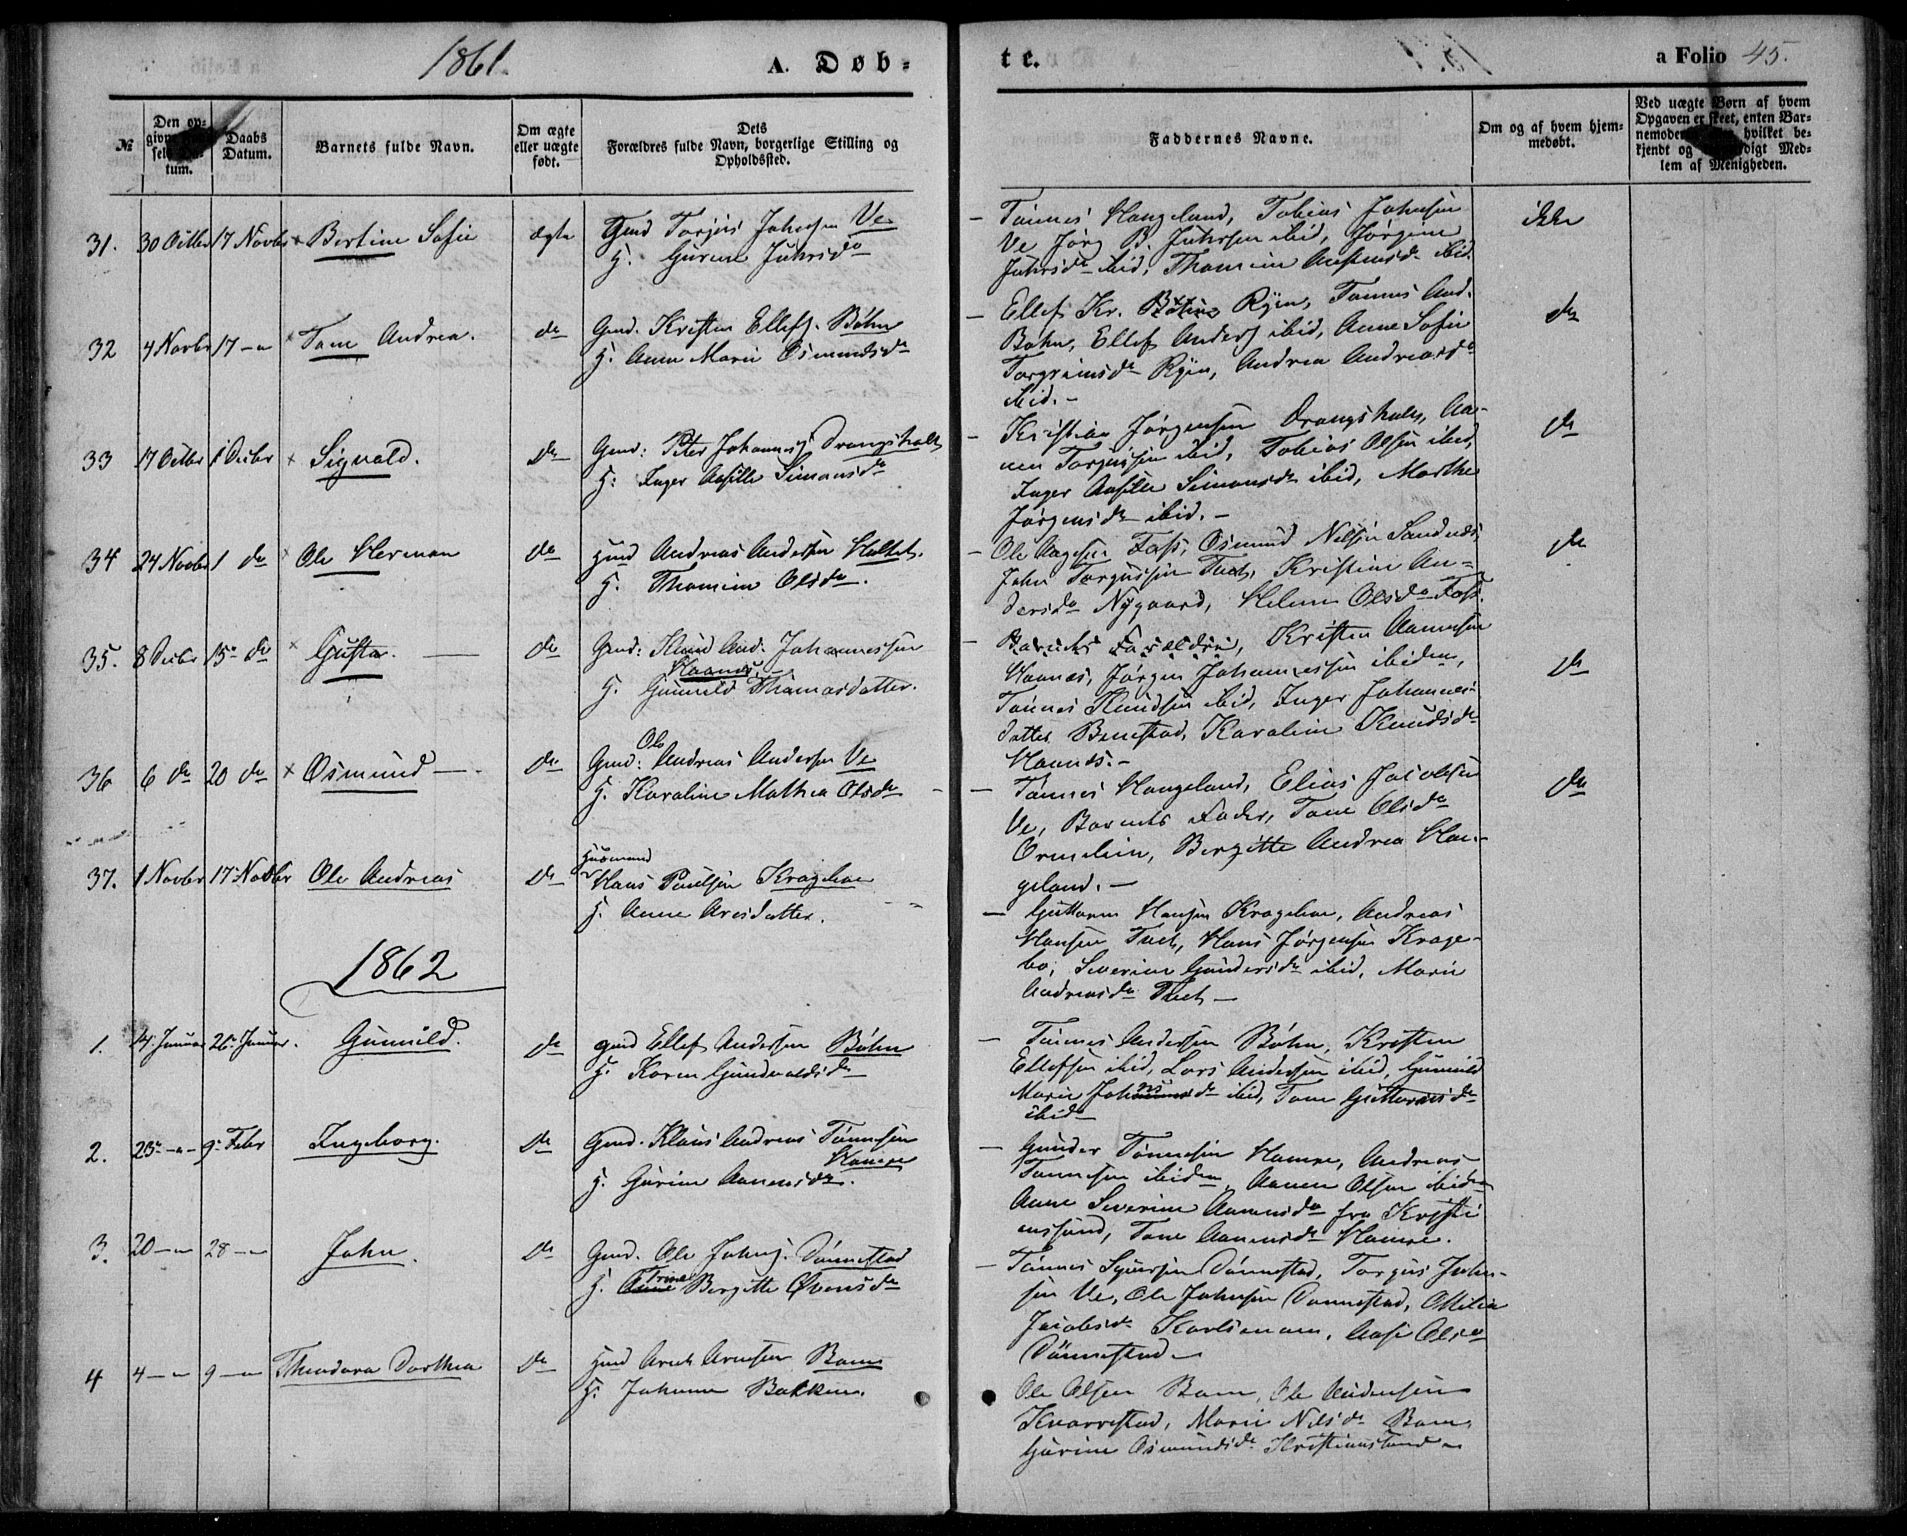 1861.
A. Døb-
te.
a Folio 45.
№
Den op-
givne
sels Da-
tum.
Daabs
Datum.
Barnets fulde Navn.
Om ægte
eller uægte
født.
Dets
Forældres fulde Navn, borgerlige Stilling og
Opholdssted.
Faddernes Navne.
Om og af hvem hjem-
medøbt.
Ved uægte Børn af hvem
Opgaven er skeet, enten Bar-
nemoder hvilket be-
kjendt og Med-
lem af Menigheden.
31. 30 Octbr 17 Novbr × Bertine Sofie ægte Gmd Torjus Johnsen Ve
H. Gurine Juhrsdr
– Tønnes Haugeland, Tobias Johnsen
Ve Jørg B. Juhrsen ibid, Jørgine
Juhrsdr ibid, Thomine ibid.
ikke
32 4 Novbr 17 – " × Tone Andrea. do Gmd. Kristen Ellefs. Bøhn
H. Anne Marie Osmundsdr
– Ellef Kr. Ryen, Tønnes And.
Bøhn, Ellef Anders ibid, Anne Sofie
Torgrimsdr Ryen, Andrea Andreasdr
ibid. –
do
33 17 Octbr 1 Decbr × Sigvald. do Gmd: Peter Johannes Drangsholt
H: Inger Aasille Simonsdr
– Kristian Jørgensen Drangsholt, Aa-
nen Torjussen ibid, Tobias Olsen ibid,
Inger Aasille Simonsdr ibid, Marthe
Jørgensdr ibid. –
do
34 24 Novbr 1 do × Ole Herman do Hmd Andreas Andersen Holtet.
H. Thomine Olsdr.
– Ole Aagesen Foss, Osmund Nilsen Sandnes,
John Torgussen Tveit, Kristine An-
dersdr Nygaard, Helene Olsdr Foss.
do
35. 8 Decbr 15 do × Gusta. – do Gmd: Knud And. Johannessen
Haanes, –
H. Gunnild Thomasdatter.
– Barnets Forældre, Kristen Aanensen
Haanes, Jørgen Johannessen ibidem,
Tønnes Knudsen ibid, Inger Johannes-
datter Benestad, Karoline Knudsdr
Haanes. –
do
36 6 do 20 do × Osmund – do Gmd: Ole Andreas Andersen Ve
H. Karoline Mathea Olsdr
– Tønnes Haugeland, Elias Jacobsen
Ve, Barnets Fader, Tone Olsdr
Ormelien, Bergitte Andrea Hau-
geland. –
do
37. 1 Novbr 17 Novbr Ole Andreas do Husmand
Hans Poulsen Kragebo
H. Anne Aresdatter.
– Guttorm Hansen Kragebo, Andreas
Hansen Tveit, Hans Jørgensen Krage-
bo, Severine Gundersdr ibid, Marie
Andreasdr Tveit –
1862
1. 14 Januar 26 Januar. Gunnild. do Gmd Ellef Andersen Bøhn
H. Karen Gundvaldsdr
– Tønnes Andersen Bøhn, Kristen
Ellefsen ibid, Lars Andersen ibid, Gunnild
Marie Johnsdr ibid, Tone Guttormsdr
ibid
2. 23 – " – 9 Febr Ingeborg. do Gmd. Klaus Andreas Tønnesen
Hamre
H. Gurine Aanensdr.
– Gunder Tønnesen Hamre, Andreas
Tønnesen ibidem, Aanen Olsen ibidem
Anne Severine Aanensdr fra Kristi-
anssund, Tone Aanensdr Hamre.
3. 20 – " 28 – " John. do Gmd. Ole Johns. Dønnestad
H. Trine Bergitte Øvensdr
– Tønnes Syvertsen Dønnestad, Torgus John-
sen Ve, Ole Johnsen Dønnestad, Ottilia
Jacobsdr , Aase Olsdr
Dønnestad –
4 4 – " 9 – " Theodora Dorthea do Hmd Arent Arentsen Boen
H. Johanne Bakken.
Ole Olsen Boen, Ole Andersen
Knarrestad, Marie Nilsdr Boen,
Gurine Osmundsdr Kristianssand –